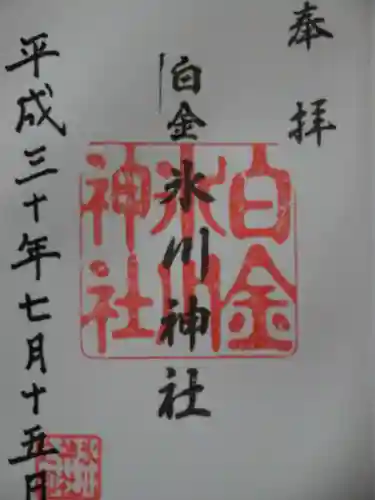 奉拝
白金
氷川神社
白金
氷川
神社
平成三十年七月十五日